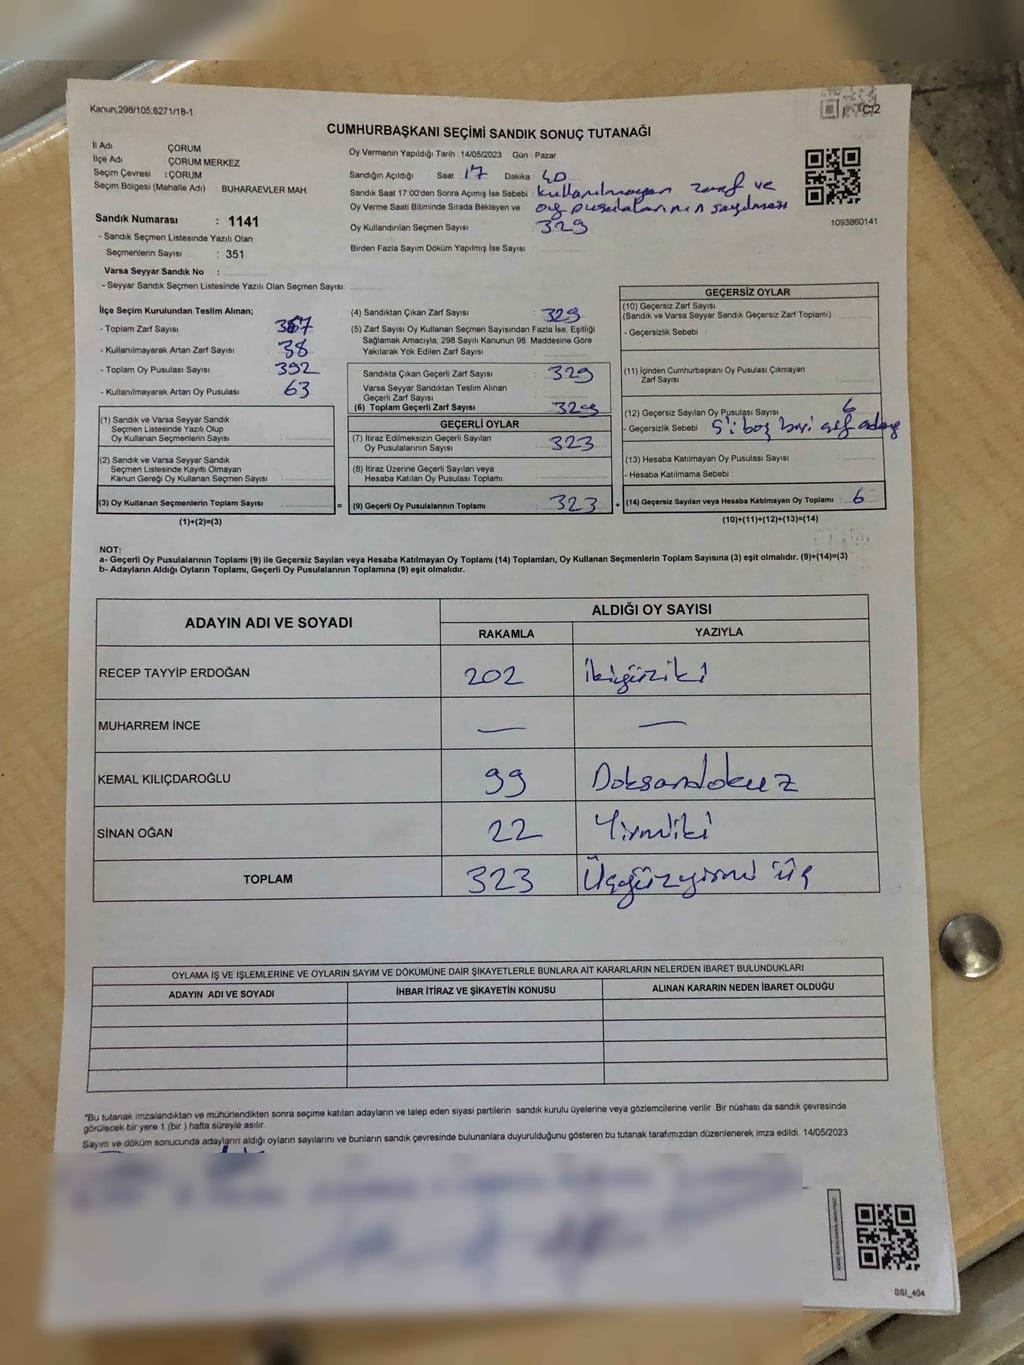 Kanun;298/105;6271/18-1
C/2
CUMHURBAŞKANI SEÇİMİ SANDIK SONUÇ TUTANAĞI
İl Adı ÇORUM
İlçe Adı ÇORUM MERKEZ
Seçim Çevresi : ÇORUM
Seçim Bölgesi (Mahalle Adı) : BUHARAEVLER MAH.
Sandık Numarası : 1141
- Sandık Seçmen Listesinde Yazılı Olan
Seçmenlerin Sayısı : 351
Varsa Seyyar Sandık No :
- Seyyar Sandık Seçmen Listesinde Yazılı Olan Seçmen Sayısı:
Oy Vermenin Yapıldığı Tarih : 14/05/2023 Gün : Pazar
Sandığın Açıldığı Saat : 17 Dakika : 40
Sandık Saat 17:00'den Sonra Açımış İse Sebebi kullanılmayan zarf ve
Oy Verme Saati Bitiminde Sırada Bekleyen ve oy pusulalarının sayılması
Oy Kullandırılan Seçmen Sayısı 329
Birden Fazla Sayım Döküm Yapılmış İse Sayısı
1093860141
İlçe Seçim Kurulundan Teslim Alınan;
- Toplam Zarf Sayısı 367
- Kullanılmayarak Artan Zarf Sayısı 38
- Toplam Oy Pusulası Sayısı 392
- Kullanılmayarak Artan Oy Pusulası 63
(1) Sandık ve Varsa Seyyar Sandık
Seçmen Listesinde Yazılı Olup
Oy Kullanan Seçmenlerin Sayısı
(2) Sandık ve Varsa Seyyar Sandık
Seçmen Listesinde Kayıtlı Olmayan
Kanun Gereği Oy Kullanan Seçmen Sayısı
(3) Oy Kullanan Seçmenlerin Toplam Sayısı
(1)+(2)=(3)
=
(4) Sandıktan Çıkan Zarf Sayısı : 329
(5) Zarf Sayısı Oy Kullanan Seçmen Sayısından Fazla İse, Eşitliği
Sağlamak Amacıyla, 298 Sayılı Kanunun 98. Maddesine Göre
Yakılarak Yok Edilen Zarf Sayısı
Sandıkta Çıkan Geçerli Zarf Sayısı : 329
Varsa Seyyar Sandıktan Teslim Alınan
Geçerli Zarf Sayısı
(6) Toplam Geçerli Zarf Sayısı : 329
GEÇERLİ OYLAR
(7) İtiraz Edilmeksizin Geçerli Sayılan
Oy Pusulalarının Sayısı 323
(8) İtiraz Üzerine Geçerli Sayılan veya
Hesaba Katılan Oy Pusulası Toplamı
(9) Geçerli Oy Pusulalarının Toplamı : 323
+
GEÇERSİZ OYLAR
(10) Geçersiz Zarf Sayısı
(Sandık ve Varsa Seyyar Sandık Geçersiz Zarf Toplamı)
- Geçersizlik Sebebi :
(11) İçinden Cumhurbaşkanı Oy Pusulası Çıkmayan
Zarf Sayısı
(12) Geçersiz Sayılan Oy Pusulası Sayısı 6
- Geçersizlik Sebebi : 5'i boş biri
(13) Hesaba Katılmayan Oy Pusulası Sayısı
- Hesaba Katılmama Sebebi
(14) Geçersiz Sayılan veya Hesaba Katılmayan Oy Toplamı : 6
(10)+(11)+(12)+(13)=(14)
NOT:
a- Geçerli Oy Pusulalarının Toplamı (9) ile Geçersiz Sayılan veya Hesaba Katılmayan Oy Toplamı (14) Toplamları, Oy Kullanan Seçmenlerin Toplam Sayısına (3) eşit olmalıdır. (9)+(14)=(3)
b- Adayların Aldığı Oyların Toplamı, Geçerli Oy Pusulalarının Toplamına (9) eşit olmalıdır.
ADAYIN ADI VE SOYADI ALDIĞI OY SAYISI
RAKAMLA YAZIYLA
RECEP TAYYİP ERDOĞAN 202 İkiyüziki
MUHARREM İNCE — —
KEMAL KILIÇDAROĞLU 99 Doksandokuz
SİNAN OĞAN 22 Yirmiiki
TOPLAM 323 Üçyüzyirmi üç
OYLAMA İŞ VE İŞLEMLERİNE VE OYLARIN SAYIM VE DÖKÜMÜNE DAİR ŞİKAYETLERLE BUNLARA AİT KARARLARIN NELERDEN İBARET BULUNDUKLARI
ADAYIN ADI VE SOYADI İHBAR İTİRAZ VE ŞİKAYETİN KONUSU ALINAN KARARIN NEDEN İBARET OLDUĞU
*Bu tutanak imzalandıktan ve mühürlendikten sonra seçime katılan adayların ve talep eden siyasi partilerin sandık kurulu üyelerine veya gözlemcilerine verilir. Bir nüshası da sandık çevresinde
görülecek bir yere 1 (bir) hafta süreyle asılır.
Sayım ve döküm sonucunda adayların aldığı oyların sayılarını ve bunların sandık çevresinde bulunanlara duyurulduğunu gösteren bu tutanak tarafımızdan düzenlenerek imza edildi. 14/05/2023